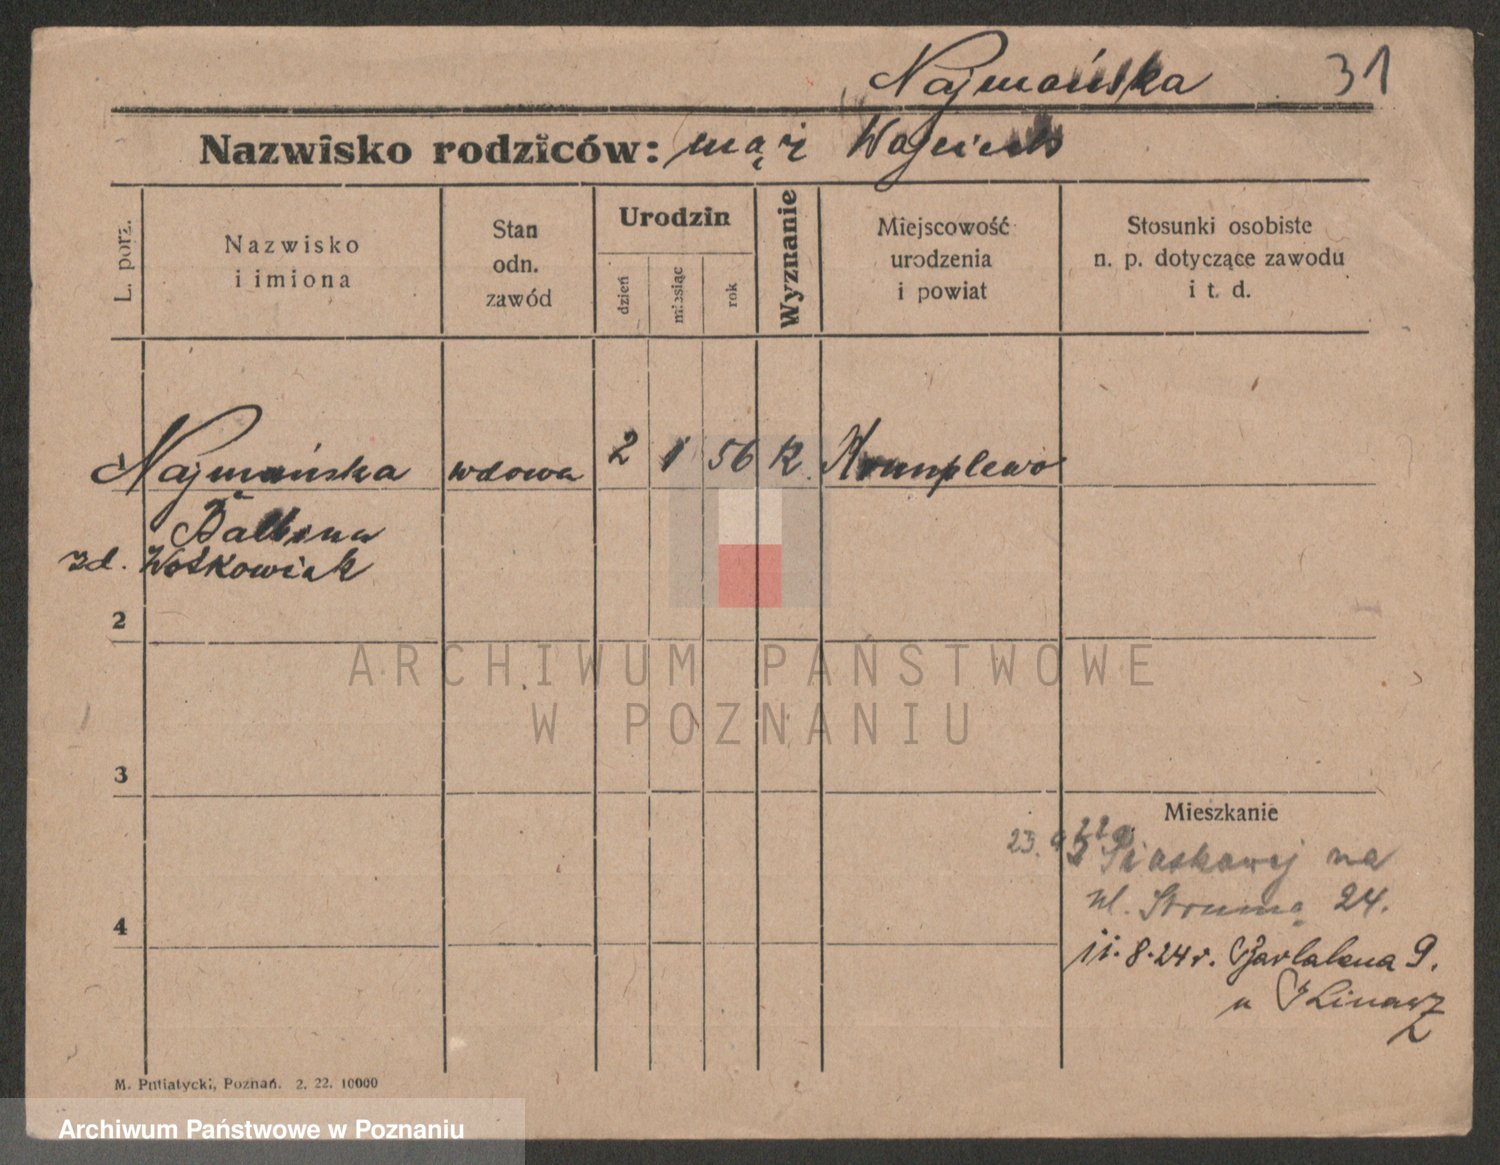 Najmańska 31
Nazwisko rodziców: mąż Wojciech
L. porz.
Nazwisko
i imiona
Stan
odn.
zawód
Urodzin
dzień
miesiąc
rok
Wyznanie
Miejscowość
urodzenia
i powiat
Stosunki osobiste
n. p. dotyczące zawodu
i t. d.
Najmańska wdowa 2 1 56 K.
Balbina
zd. Wośkowiak
2
3
Mieszkanie
23. Piaskawej na
ul. Strumną 24.
4
11.8.24 r. Garbalena 9.
u
M. Putiatycki, Poznań. 2. 22. 10000
ARCHIWUM PAŃSTWOWE
W POZNANIU
Archiwum Państwowe w Poznaniu